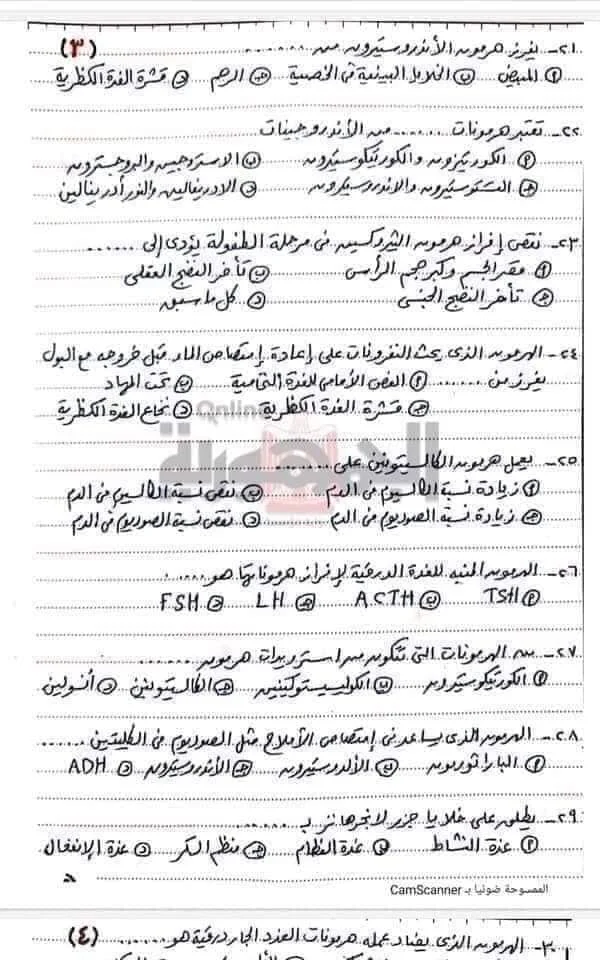 (٣)
٢١- يفرز هرمون الأندروستيرون من .......
أ المبيض ب الخلايا البينية فى الخصية ج الرحم د قشرة الغدة الكظرية
٢٢- تعتبر هرمونات ....... من الأندروجينات
أ الكورتيزون والكورتيكوستيرون ب الاستروجين والبروجسترون
ج التستوستيرون والاندروستيرون د الادرينالين والنور أدرينالين
٢٣- نقص إفراز هرمون الثيروكسين فى مرحلة الطفولة يؤدى إلى .......
أ قصر الجسم وكبر حجم الرأس ب تأخر النضج العقلى
ج تأخر النضج الجنسى د كل ما سبق
٢٤- الهرمون الذى يحث النفرونات على إعادة إمتصاص الماء قبل خروجه مع البول
يفرز من ....... أ الفص الأمامى للغدة النخامية ب تحت المهاد
ج قشرة الغدة الكظرية د نخاع الغدة الكظرية
Online
الجمهورية
٢٥- يعمل هرمون الكالسيتونين على .......
أ زيادة نسبة الكالسيوم فى الدم ب نقص نسبة الكالسيوم فى الدم
ج زيادة نسبة الصوديوم فى الدم د نقص نسبة الصوديوم فى الدم
٢٦- الهرمون المنبه للغدة الدرقية لإفراز هرموناتها هو .......
أ TSH ب ACTH ج LH د FSH
٢٧- من الهرمونات التى تتكون من استرويدات هرمون .......
أ الكورتيكوستيرون ب الكوليسيستوكينين ج الكالسيتونين د أنسولين
٢٨- الهرمون الذى يساعد فى إمتصاص الأملاح مثل الصوديوم فى الكليتين .......
أ الباراثورمون ب الألدوستيرون ج الأندروستيرون د ADH
٢٩- يطلق على خلايا جزر لانجرهانز بـ .......
أ غدة النشاط ب غدة العظام ج منظم السكر د غدة الإنفعال
الممسوحة ضوئيا بـ CamScanner
(٤)
٣٠- الهرمون الذى يضاد عمله هرمونات الغدد الجاردرقية هو .......